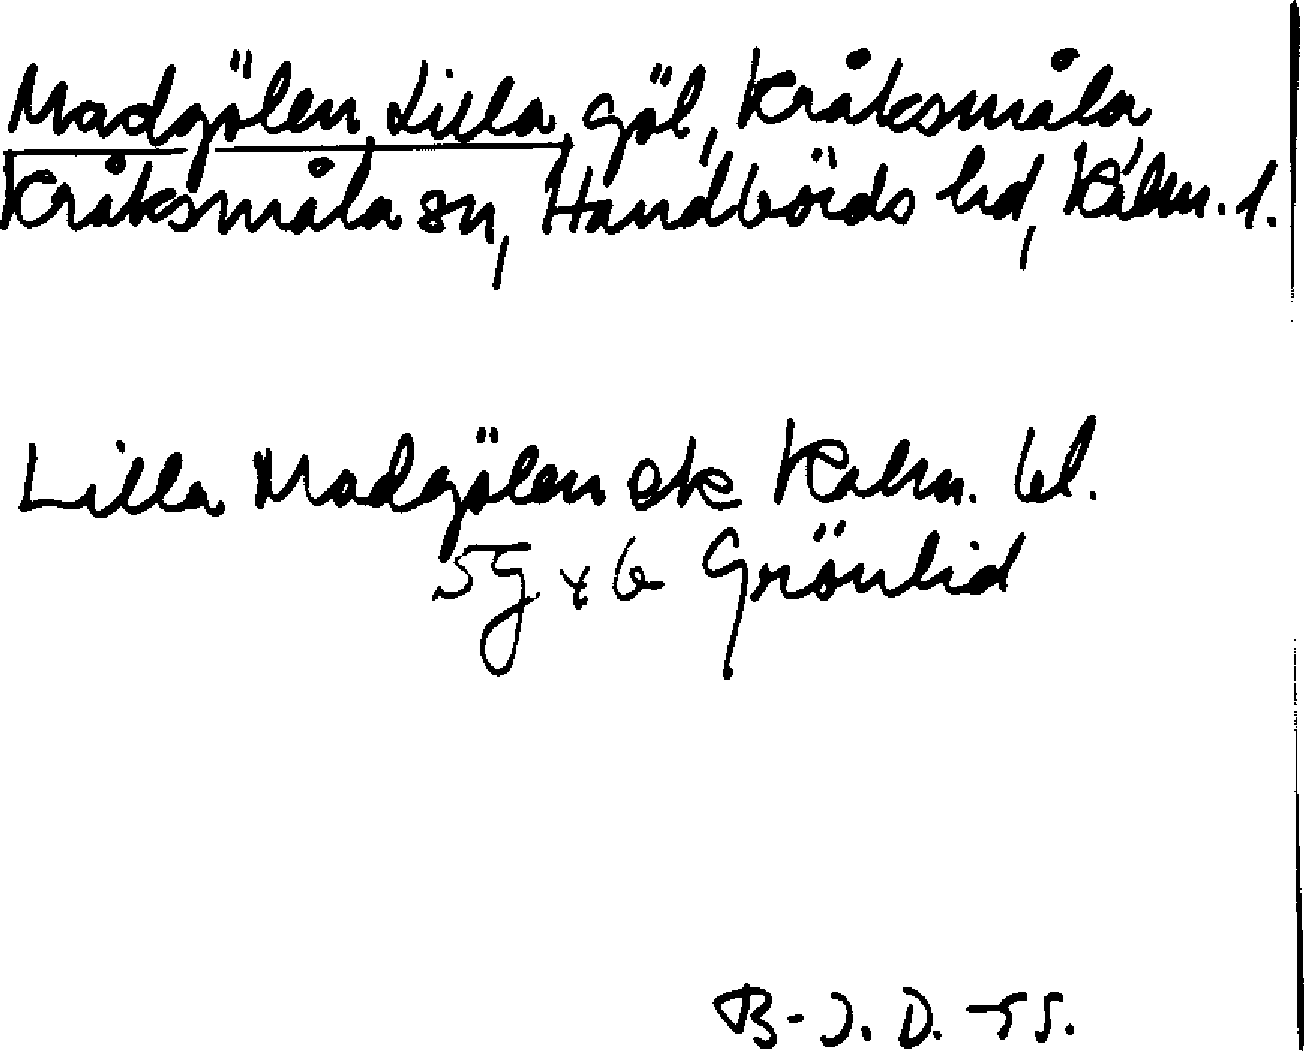 Madgölen, Lilla, göl, Kråksmåla,
Kråksmåla sn, Handbörds hd, Kalm. l.
Lilla Madgölen ek Kalm. bl.
5g x 6 Grönlid
B-J. D. -55.